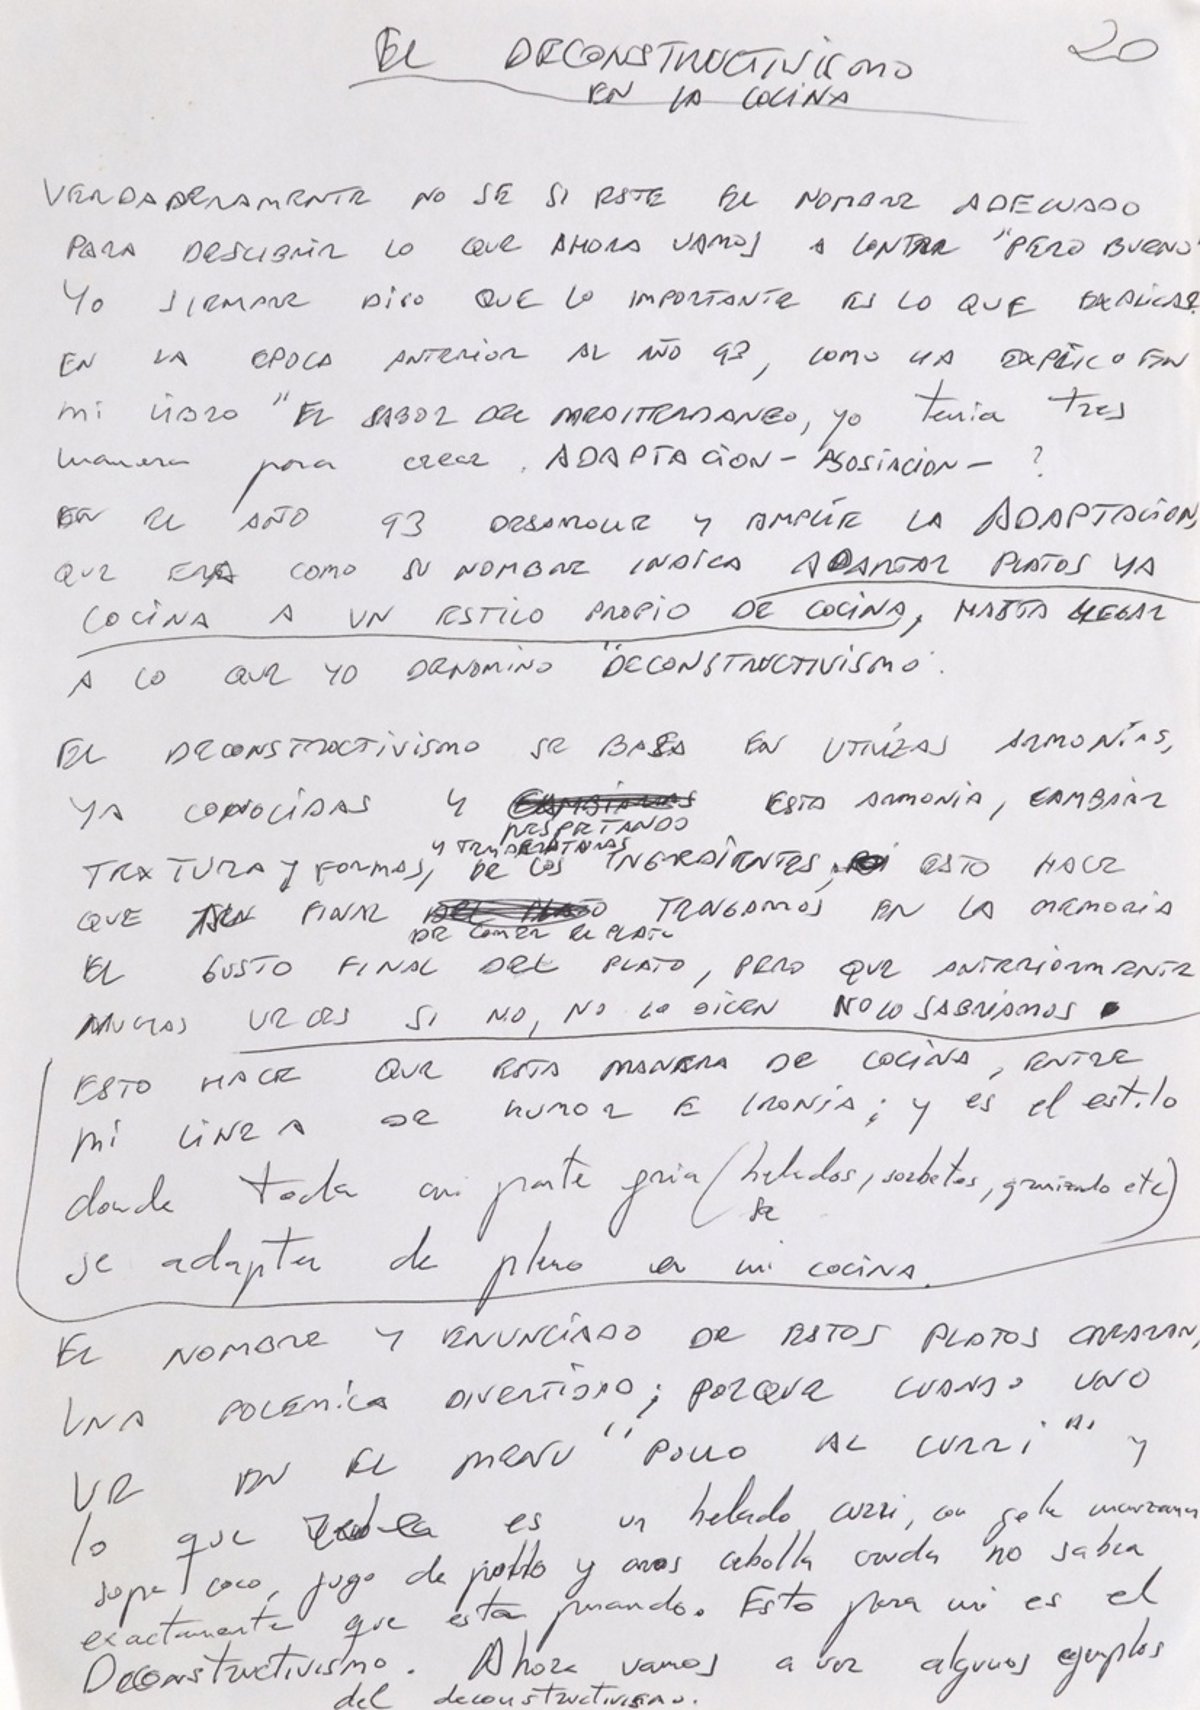 20
EL DECONSTRUCTIVISMO
EN LA COCINA
VERDADERAMENTE NO SE SI ESTE EL NOMBRE ADECUADO
PARA DESCIBRIR LO QUE AHORA VAMOS A CONTAR "PERO BUENO"
YO SIEMPRE DIGO QUE LO IMPORTANTE ES LO QUE EXPLICAS.
EN LA EPOCA ANTERIOR AL AÑO 93, COMO YA EXPLICO EN
mi LIBRO "EL SABOR DEL MEDITERRANEO, yo tenia tres
manera para crear. ADAPTACION - ASOSIACION - ?
EN EL AÑO 93 DESARROLLE Y AMPLIE LA ADAPTACION,
QUE ERA COMO SU NOMBRE INDICA ADAPTAR PLATOS YA
COCINA A UN ESTILO PROPIO DE COCINA, HASTA LLEGAR
A LO QUE YO DENOMINO "DECONSTRUCTIVISMO".
EL DECONSTRUCTIVISMO SE BASA EN UTILIZAS ARMONIAS,
YA CONOCIDAS Y ESTA ARMONIA, CAMBIAR
RESPETANDO
Y TEMPERATURAS
TEXTURA Y FORMAS, DE LOS INGREDIENTES, ESTO HACE
QUE FINAL TENGAMOS EN LA MEMORIA
DE COMER EL PLATO
EL GUSTO FINAL DEL PLATO, PERO QUE ANTERIORMENTE
MUCHAS VECES SI NO, NO LO DICEN NO LO SABRIAMOS.
ESTO HACE QUE ESTA MANERA DE COCINA, ENTRE
MI LINEA DE HUMOR E IRONIA; y es el estilo
donde toda mi parte fria (helados, sorbetes, granizado etc)
se
se adapta de pleno en mi COCINA.
EL NOMBRE Y ENUNCIADO DE ESTOS PLATOS CREARAN,
UNA POLEMICA DIVERTIDAD; PORQUE CUANDO UNO
VE EN EL MENU "POLLO AL CURRI" Y
lo que es un helado curri, con gele manzana
sopa coco, jugo de pollo y aros cebolla cruda no sabra
exactamente que esta pasando. Esto para mi es el
Deconstructivismo. Ahora vamos a ver algunos ejemplos
del deconstructivismo.